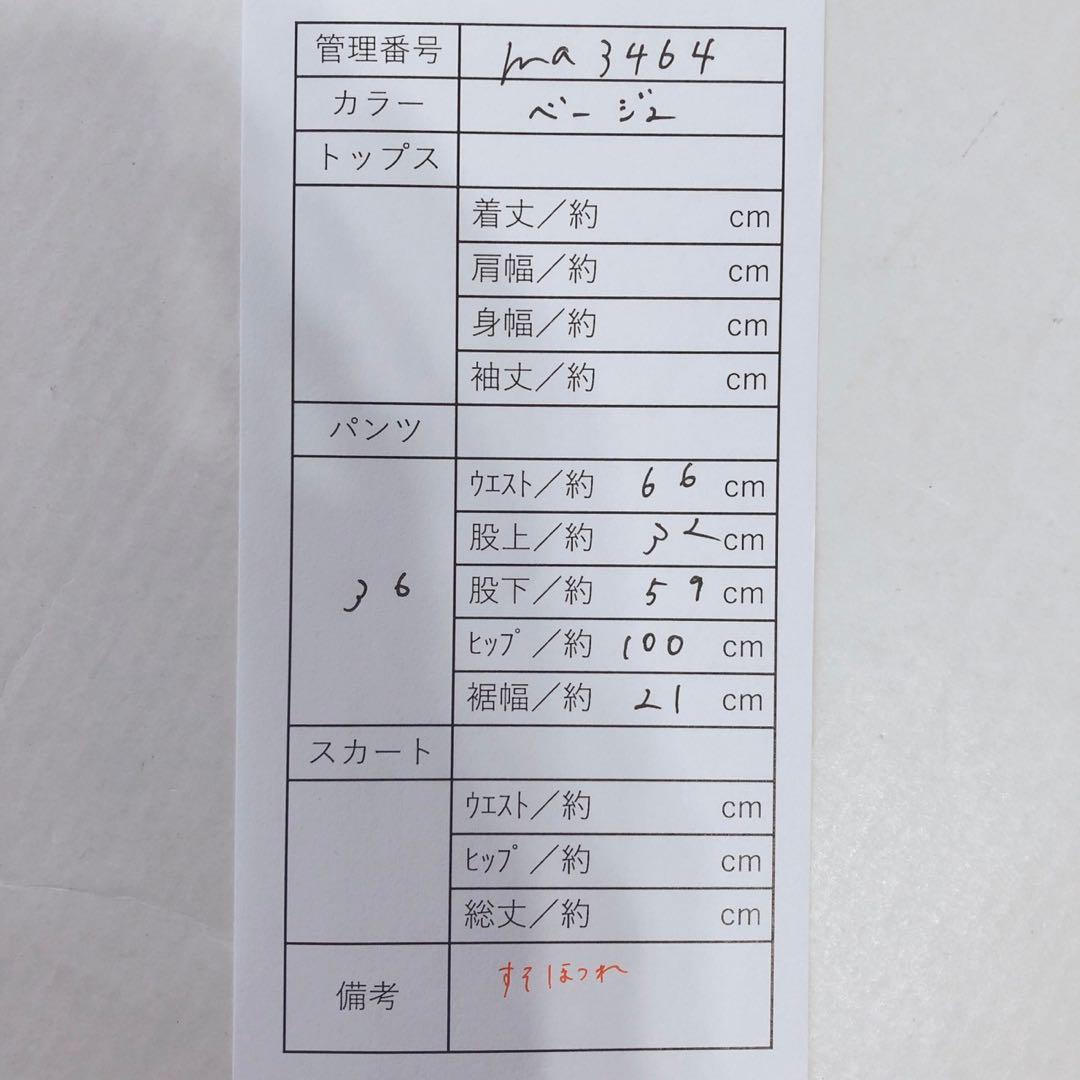 管理番号 ma 3464
カラー ベージュ
トップス
着丈／約 cm
肩幅／約 cm
身幅／約 cm
袖丈／約 cm
パンツ
36
ｳｴｽﾄ／約 66 cm
股上／約 32 cm
股下／約 59 cm
ﾋｯﾌﾟ／約 100 cm
裾幅／約 21 cm
スカート
ｳｴｽﾄ／約 cm
ﾋｯﾌﾟ／約 cm
総丈／約 cm
備考 すそほつれ